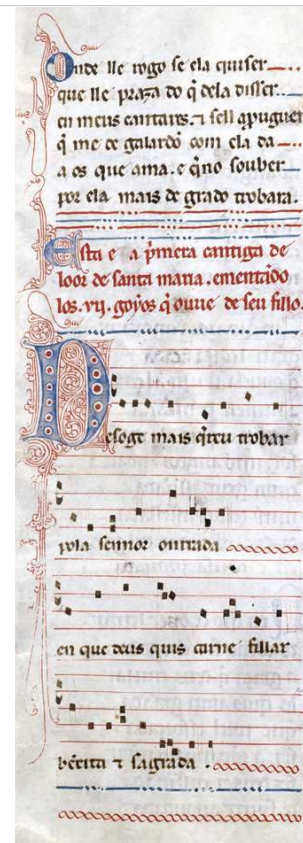 Onde lle rogo se ela quiser
que lle praza do q̃ dela disser
en meus cantares. ⁊ sell aprouguer
q̃ me de galardõ com ela da
a os que ama. e q̃no souber
por ela mais de grado trobara.
Esta e a p̃meira cantiga de
loor de santa maria. ementãdo
los .vij. goyos q̃ ouue de seu fillo.
Desoge mais q̃reu trobar
pola sennor onrrada
en que deus quis carne fillar
bẽeita ⁊ sagrada.